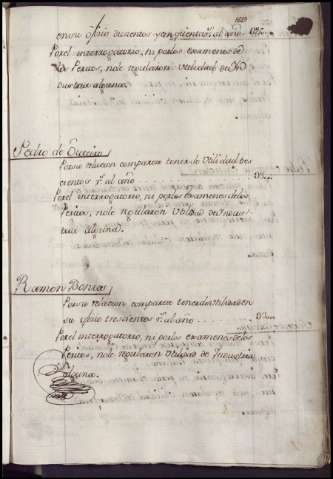 en su ofizio duzientos y cinquenta rr.s al año
Por el interrogatorio, ni por los examenes de
los Peritos, no le regularon utilidad de In
dustria alguna
Pedro de
Por su relacion comparece tener de Utilidad dos
cientos rr.s al año
Por el interrogatorio, ni por los examenes de los
Peritos, no le regularon Utilidad de Indus
tria alguna
Ramon
Por su relacion comparece tener de Utilidad en
su ofizio trescientos rr.s al año
Por el interrogatorio, ni por los examenes de los
Peritos, no le regularon Utilidad de Industria
alguna